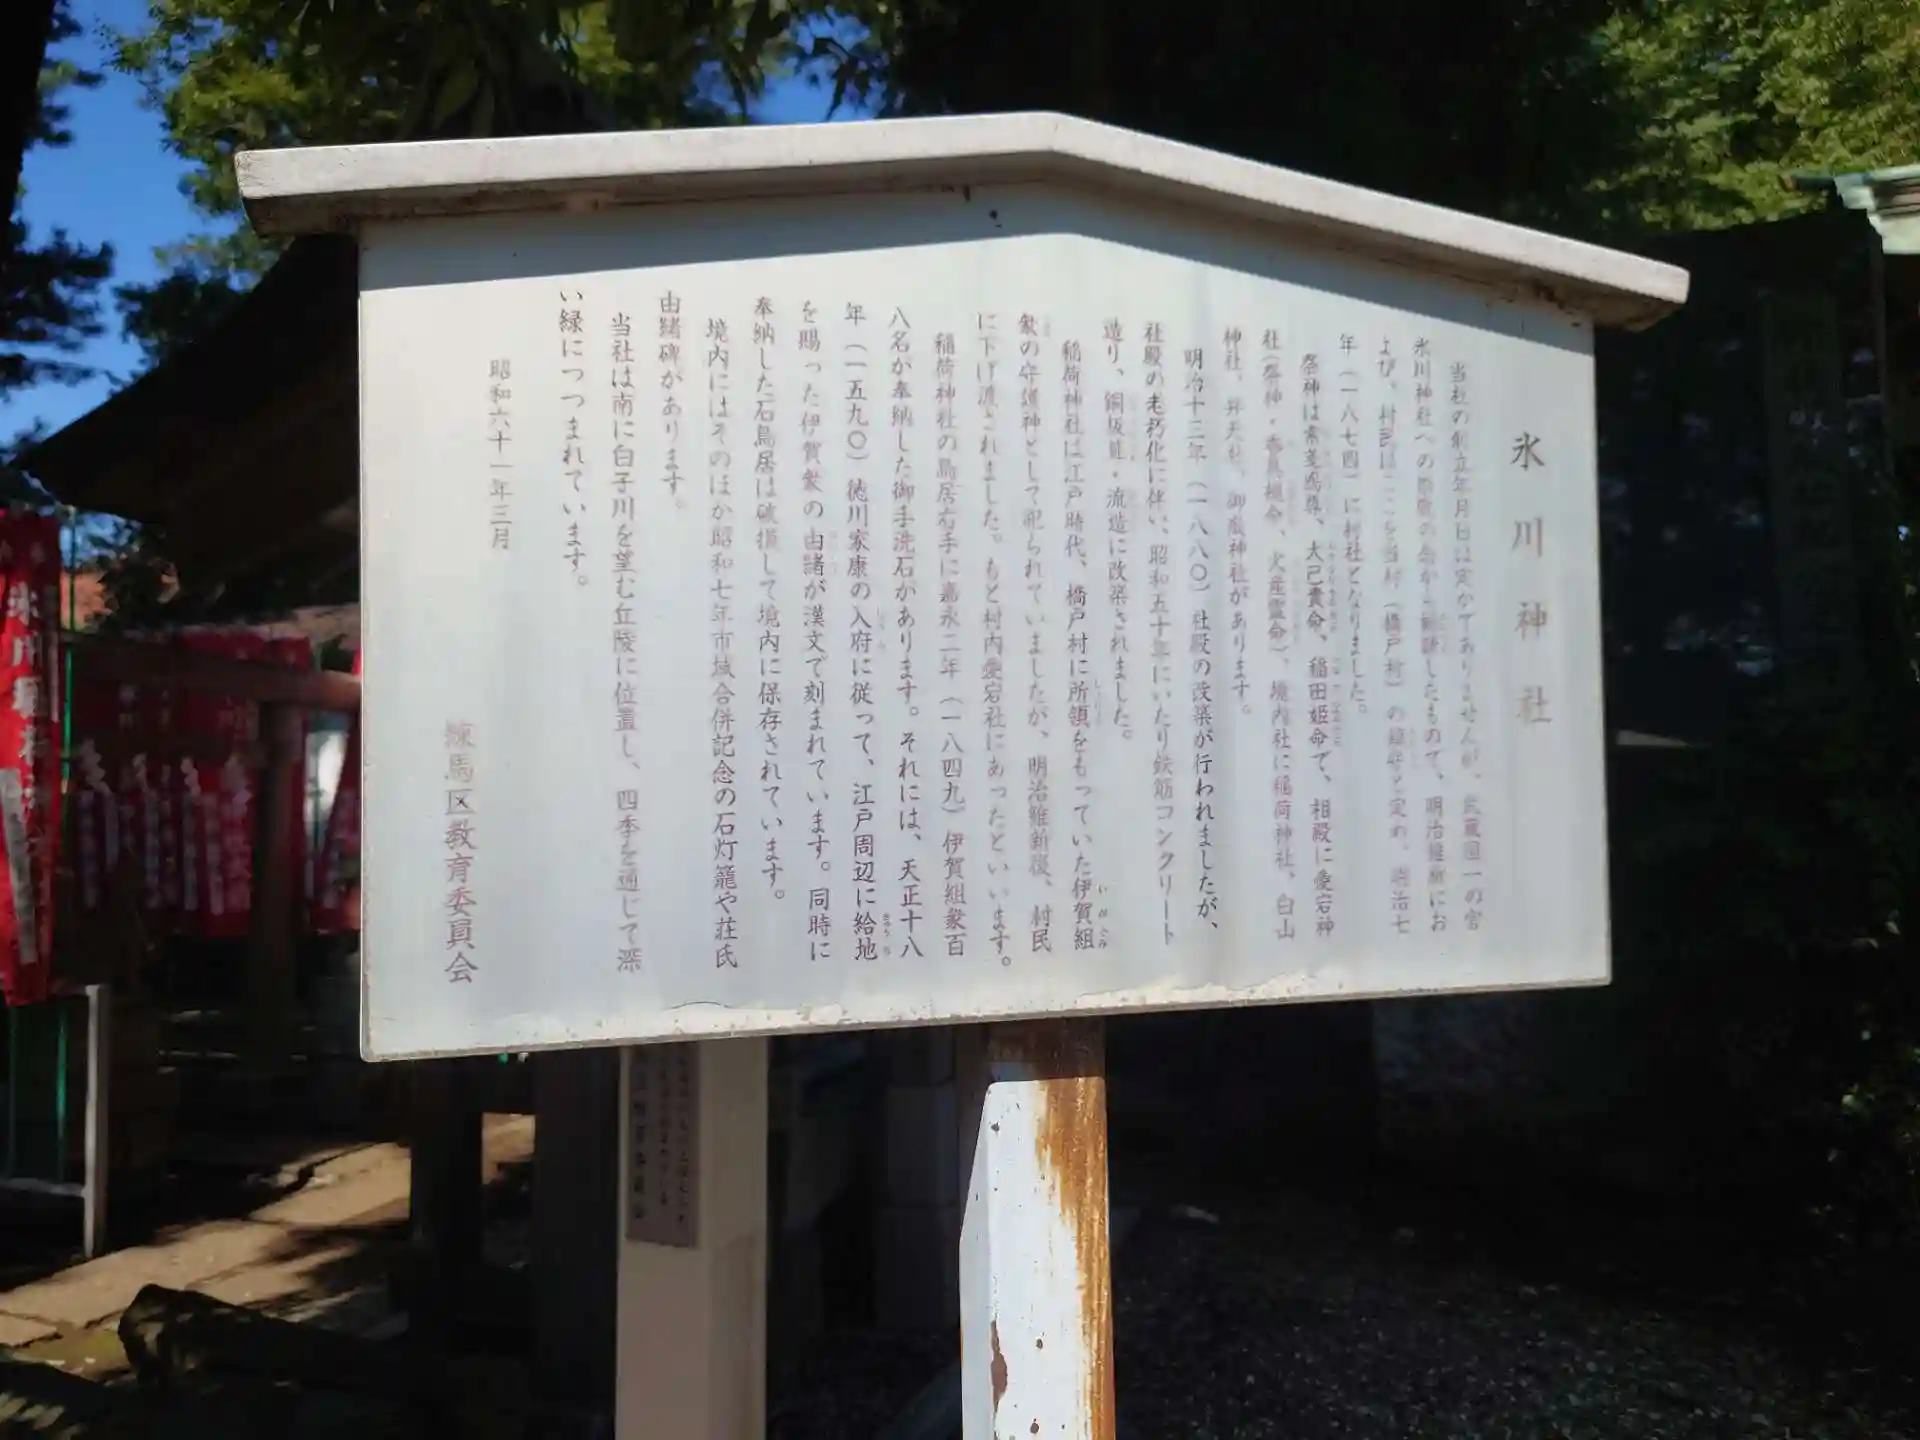 氷川神社
当社の創立年月日は定かでありませんが、武蔵国一の宮
氷川神社への崇敬の念から勧請したもので、明治維新にお
よび、村民はここを当村（橋戸村）の鎮守と定め、明治七
年（一八七四）に村社となりました。
祭神は素戔嗚尊、大己貴命、稲田姫命で、相殿に愛宕神
社（祭神・火産霊命）、境内社に稲荷神社、白山
神社、弁天社、御嶽神社があります。
明治十三年（一八八〇）社殿の改築が行われましたが、
社殿の老朽化に伴い、昭和五十年にいたり鉄筋コンクリート
造り、銅板葺・流造に改築されました。
稲荷神社は江戸時代、橋戸村に所領をもっていた伊賀組
衆の守護神として祀られていましたが、明治維新後、村民
に下げ渡されました。もと村内愛宕社にあったといいます。
稲荷神社の鳥居右手に嘉永二年（一八四九）伊賀組衆百
八名が奉納した御手洗石があります。それには、天正十八
年（一五九〇）徳川家康の入府に従って、江戸周辺に給地
を賜った伊賀衆の由緒が漢文で刻まれています。同時に
奉納した石鳥居は破損して境内に保存されています。
境内にはそのほか昭和七年市域合併記念の石灯籠や荘氏
由緒碑があります。
当社は南に白子川を望む丘陵に位置し、四季を通じて深
い緑につつまれています。
昭和六十一年三月
練馬区教育委員会